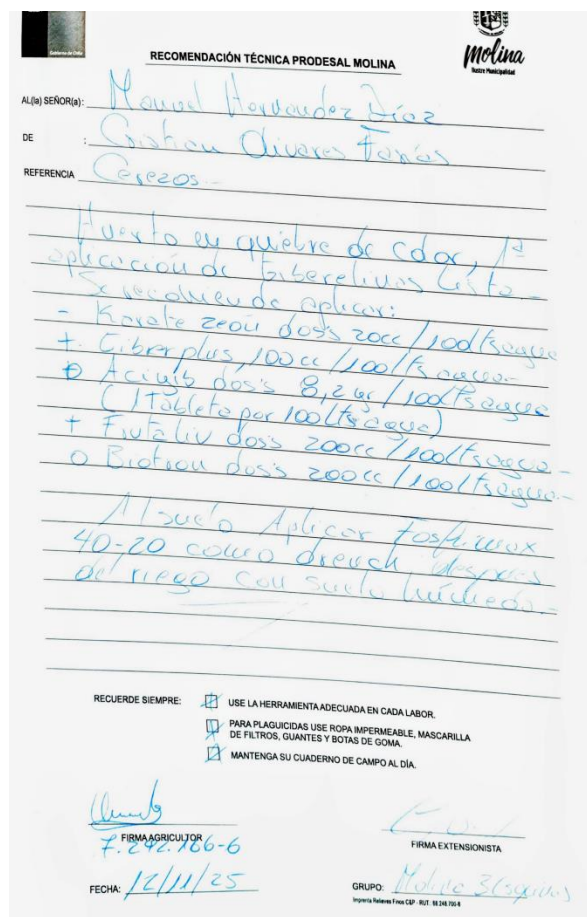 Gobierno de Chile
Molina
Ilustre Municipalidad
RECOMENDACIÓN TÉCNICA PRODESAL MOLINA
AL(la) SEÑOR(a): Manuel Hernandez Díaz
DE : Cristian Olivares Farías
REFERENCIA Cerezos.-
Huerto en quiebre de color, 1ª
aplicación de Giberelinas lista.-
Se recomienda aplicar:
- Karate zeon dosis 20cc/100lts agua
+ Giberplus, 100cc/100lts agua.-
o Aciwib dosis 8,2 gr/100lts agua
(1 Tableta por 100lts agua)
+ Frutaliv dosis 200cc/100lts agua.-
o Biotron dosis 200cc/100lts agua.-
Al suelo Aplicar Fosfimax
40-20 como drench, después
del riego con suelo húmedo.-
RECUERDE SIEMPRE: USE LA HERRAMIENTA ADECUADA EN CADA LABOR.
PARA PLAGUICIDAS USE ROPA IMPERMEABLE, MASCARILLA
DE FILTROS, GUANTES Y BOTAS DE GOMA.
MANTENGA SU CUADERNO DE CAMPO AL DÍA.
FIRMA AGRICULTOR
7.292.166-6
FIRMA EXTENSIONISTA
FECHA: 12/11/25
GRUPO: Molina 3 Esquinas
Imprenta Relieves Finos C&P - RUT.: